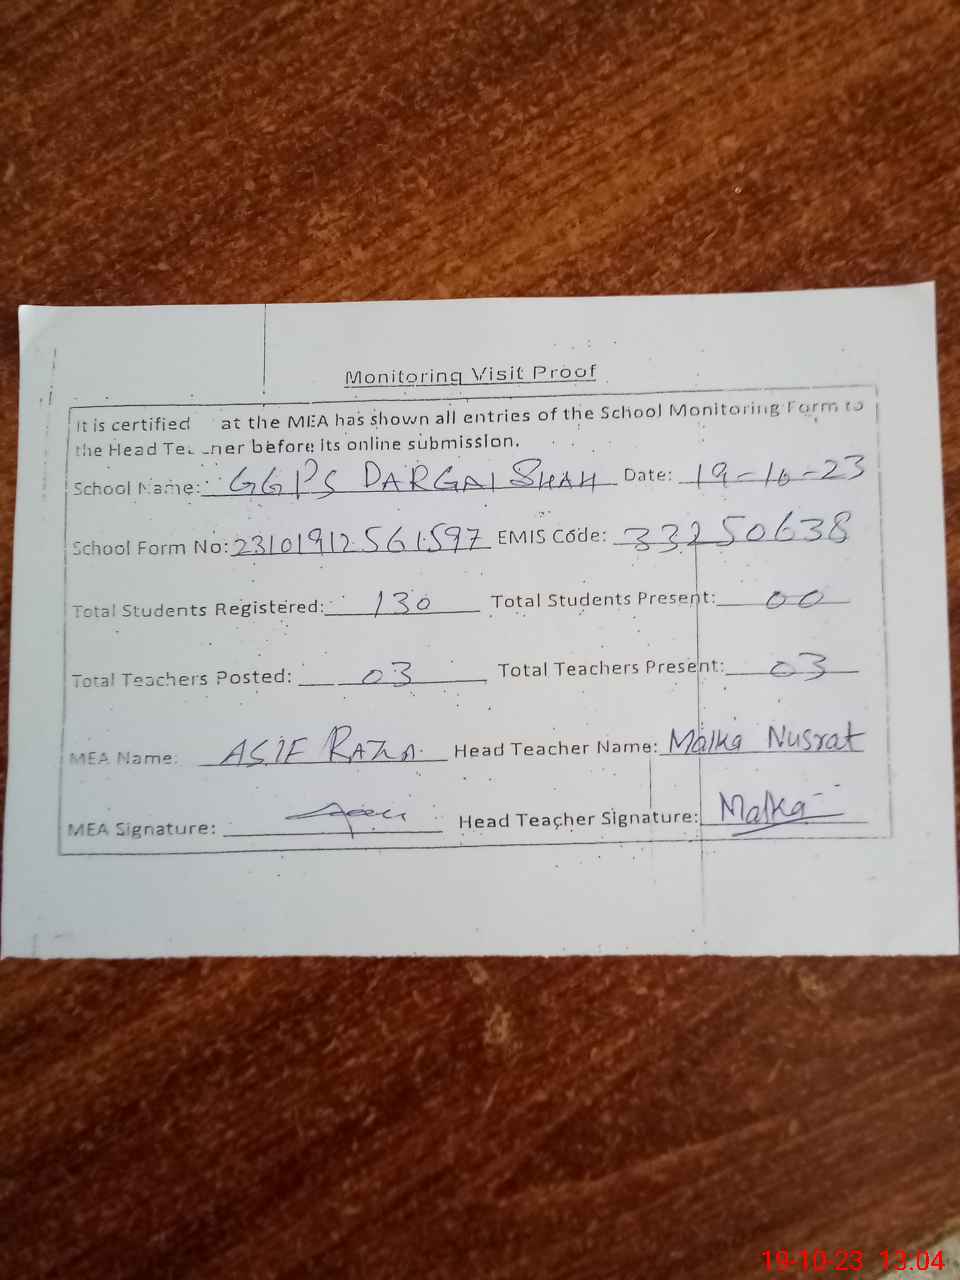 Monitoring Visit Proof
It is certified at the MEA has shown all entries of the School Monitoring Form to
the Head Teacher before its online submission.
School Name: GGPS DARGAI SHAH Date: 19-10-23
School Form No: 2310191256 1597 EMIS Code: 33250638
Total Students Registered: 130 Total Students Present: 00
Total Teachers Posted: 03 Total Teachers Present: 03
MEA Name: ASIF RAZA Head Teacher Name: Malka Nusrat
MEA Signature: Head Teacher Signature: Malka
19-10-23 13:04